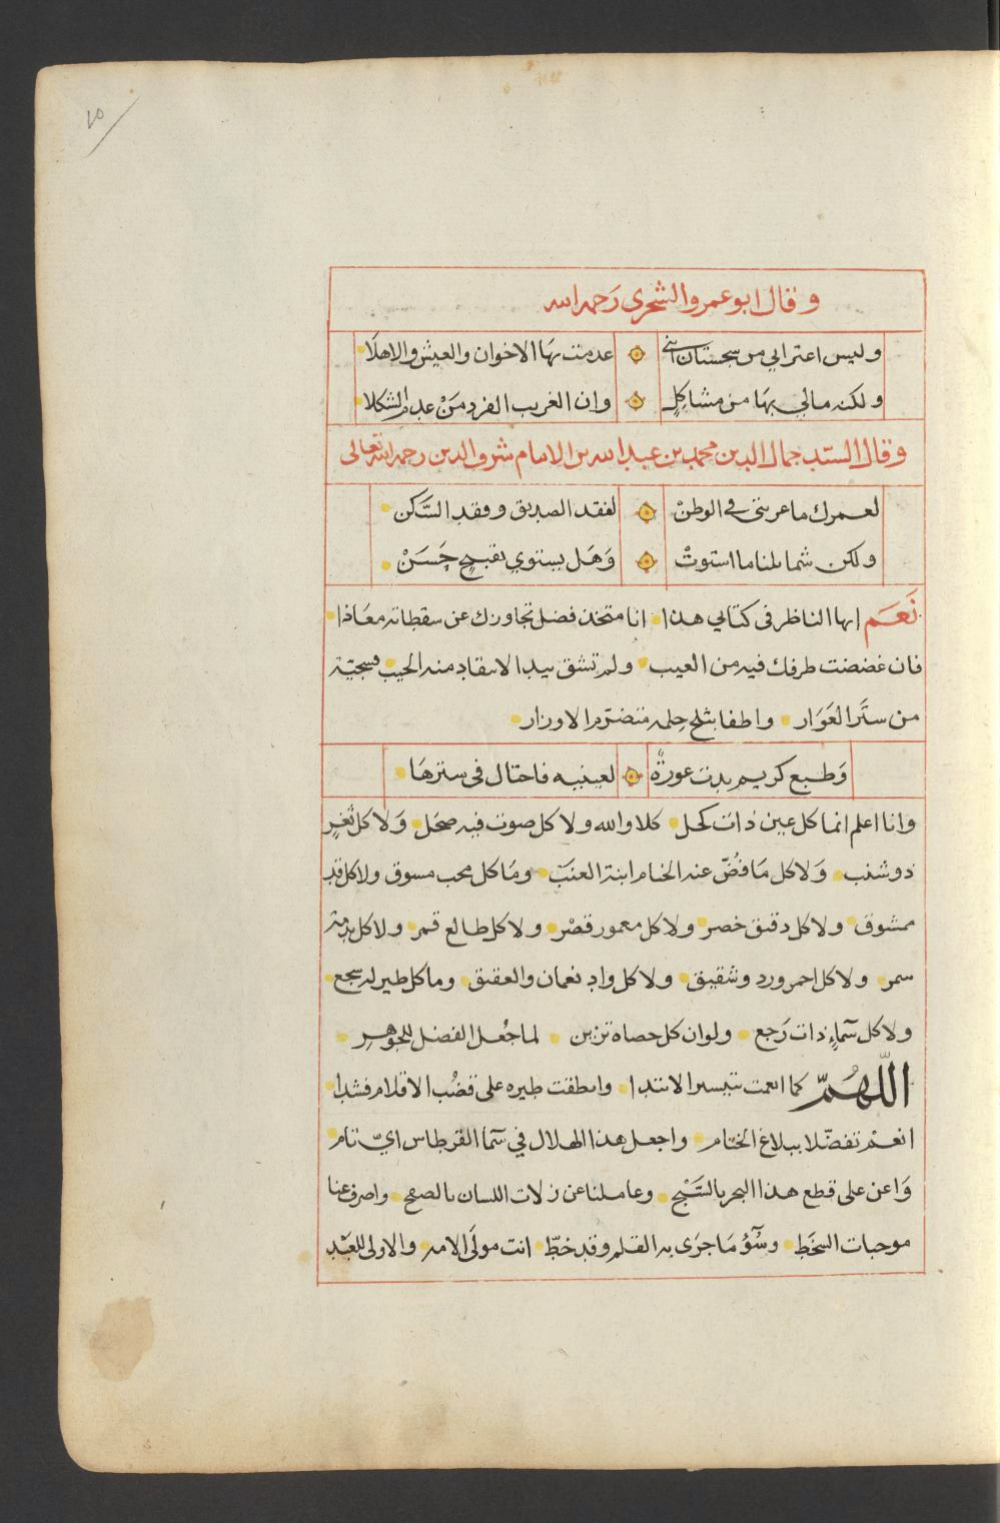 ٢٥
وقال ابو عمرو الشحرى رَحمه الله
وليس اغترابي من سجستان انني عدمت بهَا الاخوان والعيش والاهلَا
ولكنه مالي بهَا من مشاكِلٍ وان الغريب الفرد مَنْ عدم الشكلا
وقال السيّد جمال الدين محمد بن عبد الله بن الامام شرف الدين رحمه الله تعالى
لعمرك ما غربتي في الوطنْ لفقد الصديق وفقد السَّكن
ولكن شمائلنا ما استوتْ وَهَل يستوي بقبيحٍ حَسَنْ
نَعَم ايها الناظر في كتابي هذا انا متخذ فضل تجاوزك عن سقطاته معَاذا
فان غضضت طرفك فيه من العيب ولم تشق بيد الانتقاد منه الجيب فسجيّة
من ستَر العَوَار واطفا بثلج حِلمه متضرّم الاوزار
وَطبع كريم بدت عورةٌ لعينيه فاحتال في سترهَا
وانا اعلم انما كل عين ذات كحل كلا والله ولا كل صوت فيه صحَل وَلا كل ثغرٍ
ذو شنب وَلا كل مَا فُضّ عنه الختام ابنة العنَبَ ومَا كل محب مسوق ولا كل قد
ممشوق ولا كل دقيق خصر ولا كل معمور قصْر ولا كل طالع قمر ولا كل
سمر ولا كل احمر ورد وشقيق ولا كل وادٍ نعمان والعقيق وما كل طير له سجع
ولا كل سَماءٍ ذات رَجع ولو ان كل حصاه تزين لما جُعل الفضل للجَوهرِ
اللّهُمّ كما انعمت بتيسير الابتدا وانطقت طيره على قضُب الاقلام فشدا
انعم تفضّلا ببلاغ الختام واجعل هذا الهلال في سَما القرطاس ايّ تام
وَاعن على قطع هذا البحر بالسَّبح وعاملنا عن زلات اللسان بالصفح واصرف عنا
موجبات السخَط وسُوْء مَا جرَى به القلم وقد خطّ انت مولَى الامه والاولى للعبْد